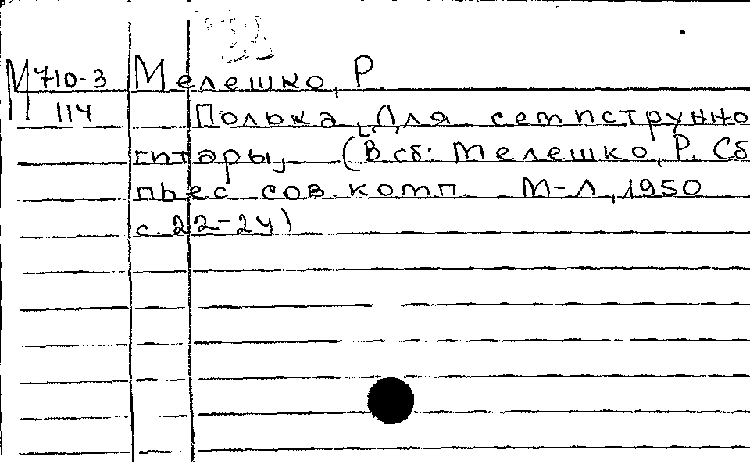 М 710-3 Мелешко, Р.
114 Полька. [Для семиструнно
гитары, (В сб: Мелешко, Р. Сб
пьес сов. комп. М-Л, 1950
с. 22-24)